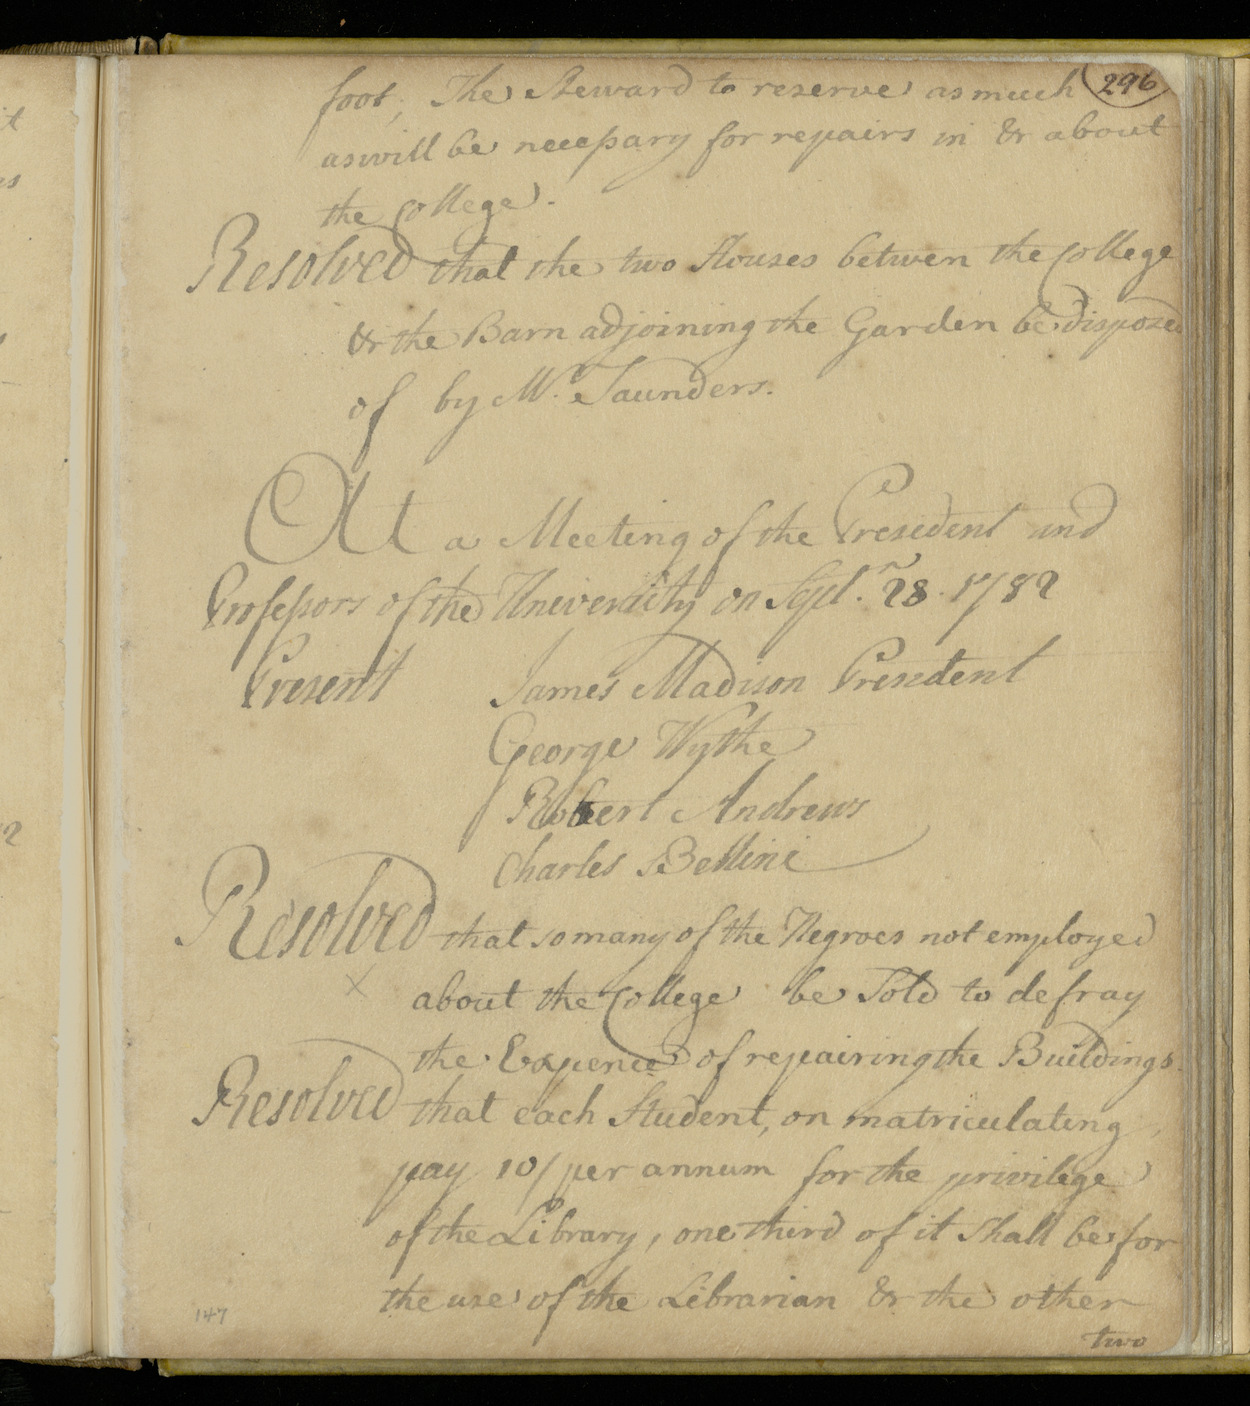 296
foot, The Steward to reserve as much
as will be necessary for repairs in & about
the College.
Resolved that the two Houses between the College
& the Barn adjoining the Garden be disposed
of by Mr. Saunders.
At a Meeting of the President and
Professors of the University on Sept. 28. 1782
Present James Madison President
George Wythe
Robert Andrews
Charles Bellini
Resolved that so many of the Negroes not employed
about the College be Sold to defray
the Expence of repairing the Buildings.
Resolved that each Student, on matriculating,
pay 10/ per annum for the privilege
of the Library, one third of it Shall be for
the use of the Librarian & the other
two
147